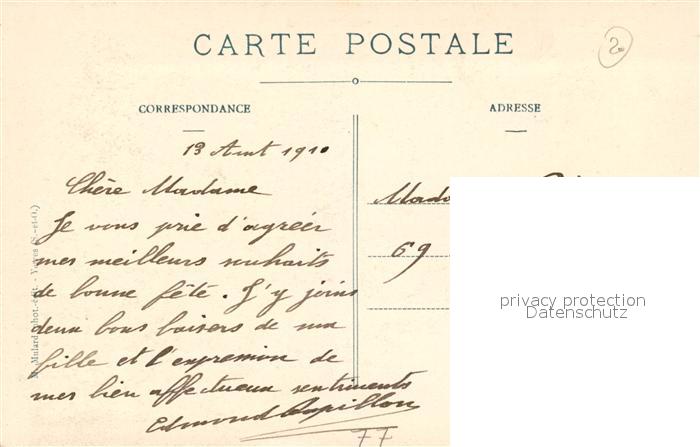 2
CARTE POSTALE
CORRESPONDANCE
ADRESSE
13 Aout 1910
Chère Madame
Je vous prie d'agréer
mes meilleurs souhaits
de bonne fête. J'y joins
deux bons baisers de ma
fille et l'expression de
mes bien affectueux sentiments
Edmond Papillon
77
69
privacy protection
Datenschutz